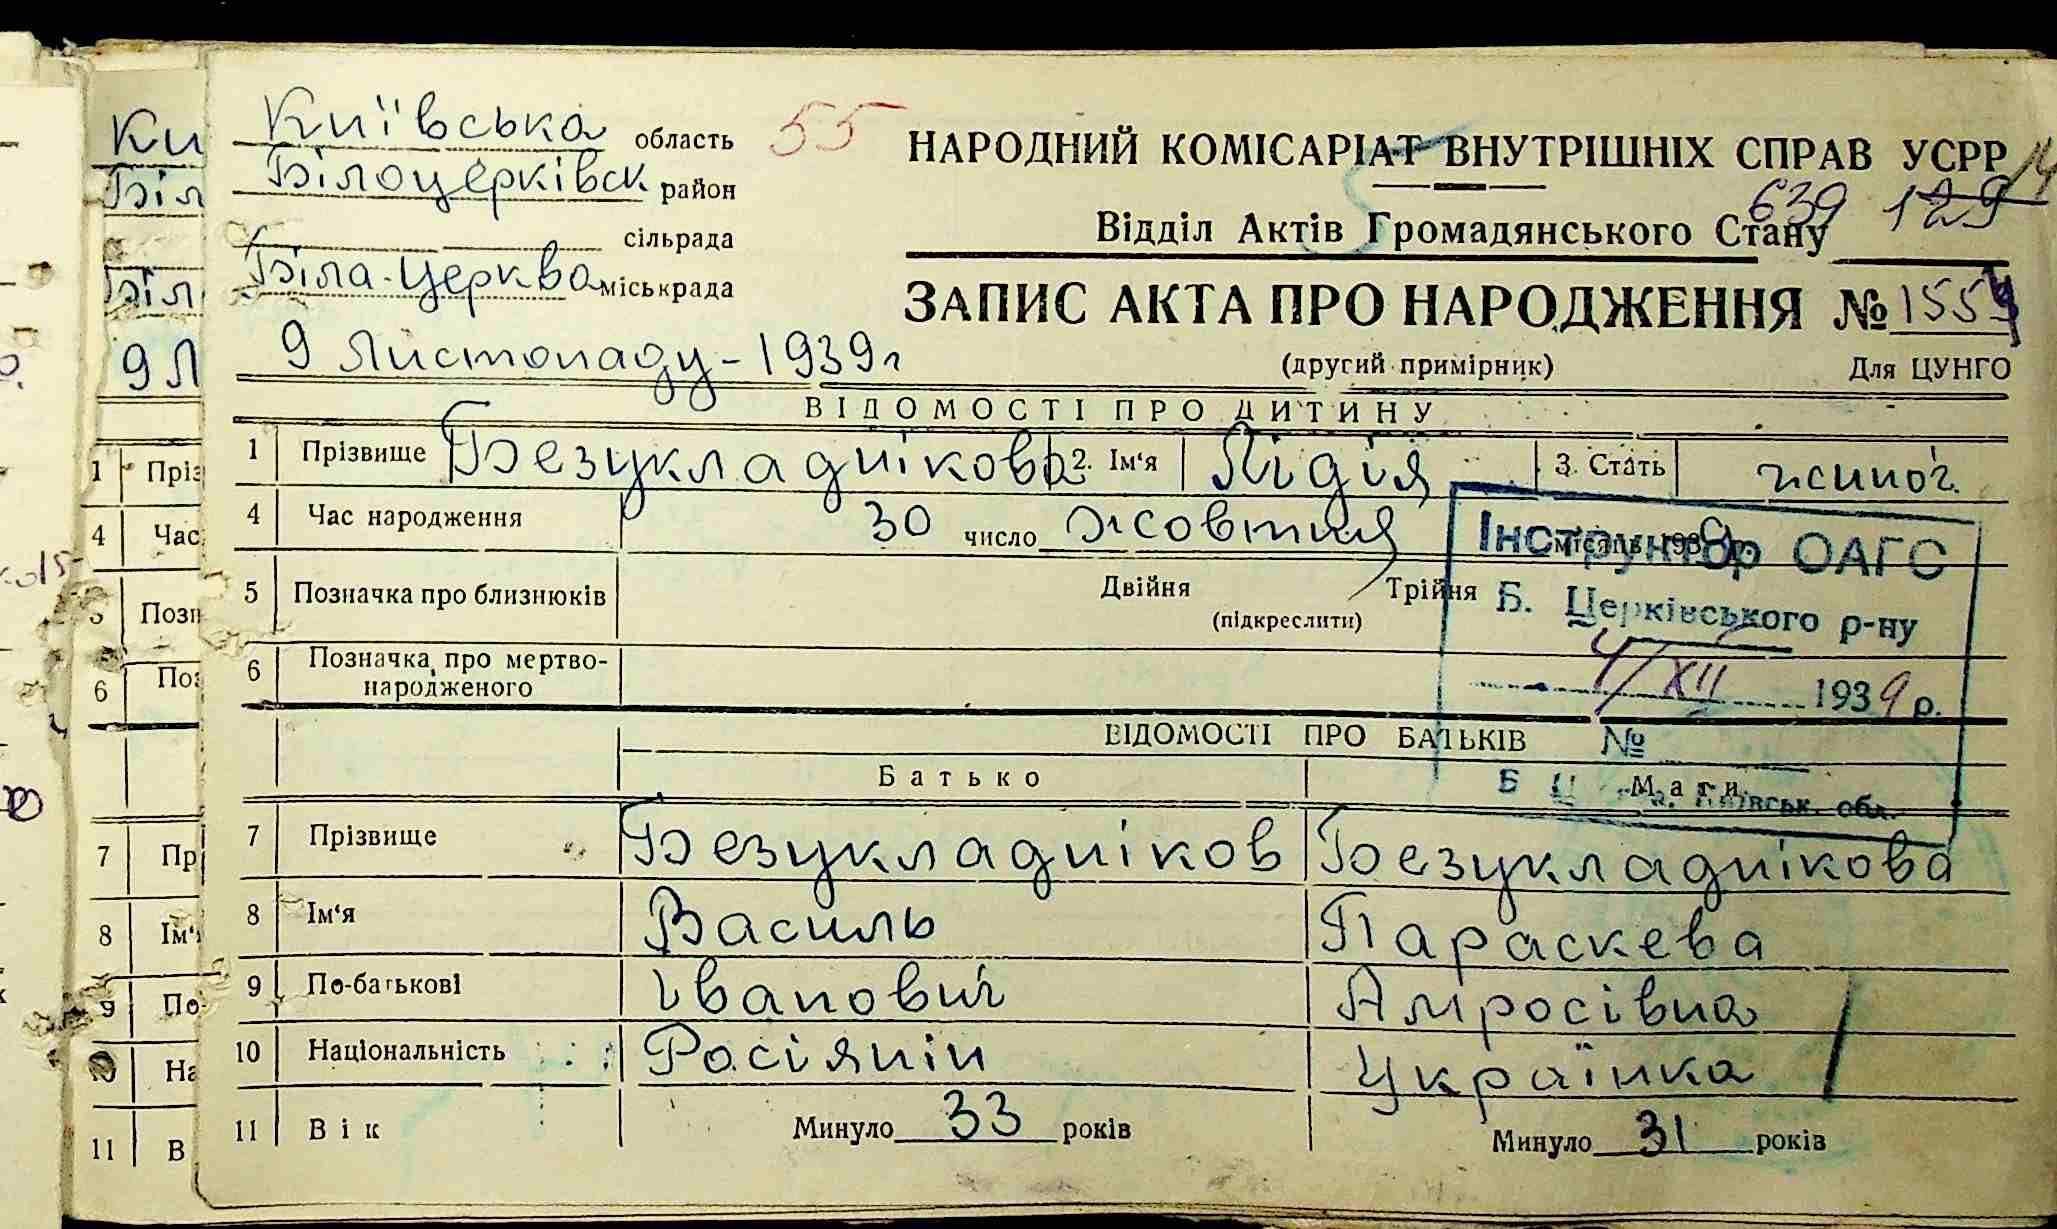 Київська область 55
Білоцерківськ район
сільрада
Біла-Церква міськрада
9 Листопаду - 1939 г
НАРОДНИЙ КОМІСАРІАТ ВНУТРІШНІХ СПРАВ УСРР
639 129 14
Відділ Актів Громадянського Стану
ЗАПИС АКТА ПРО НАРОДЖЕННЯ № 1554
(другий примірник) Для ЦУНГО
ВІДОМОСТІ ПРО ДИТИНУ
1 Прізвище Безукладнікова 2. Ім'я Лідія 3. Стать жіноч.
4 Час народження 30 число жовтня місяць 1939 р.
5 Позначка про близнюків Двійня Трійня
(підкреслити)
6 Позначка про мертво-
народженого
Інструктор ОАГС
Б. Церківського р-ну
4/XII 1939 р.
№
Б Ц Київськ. обл.
ВІДОМОСТІ ПРО БАТЬКІВ
Батько Мати
7 Прізвище Безукладніков Безукладнікова
8 Ім'я Василь Параскева
9 По-батькові Іванович Амросівна
10 Національність Росіянін Українка
11 Вік Минуло 33 років Минуло 31 років
Ки
Біл
Біл
9 Л
1 Пріз
4 Час
5 Позн
6 Поз
7 Пр
8 Ім'
9 По
10 На
11 В